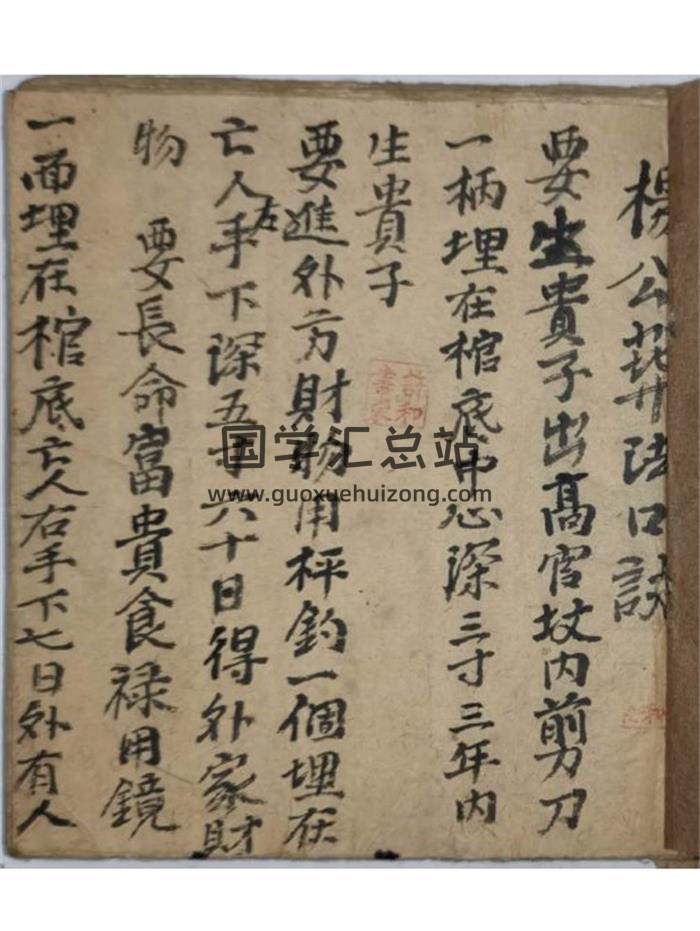 楊公葬法口訣
要生貴子出高官坟内剪刀
一柄埋在棺底中心深三寸三年内
生貴子
要進外方財物用秤鈎一個埋在
亡人左手下深五寸六十日得外家財
物 要長命富貴食禄用鏡
一面埋在棺底亡人右手下七日外有人
国学汇总站
www.guoxuehuizong.com